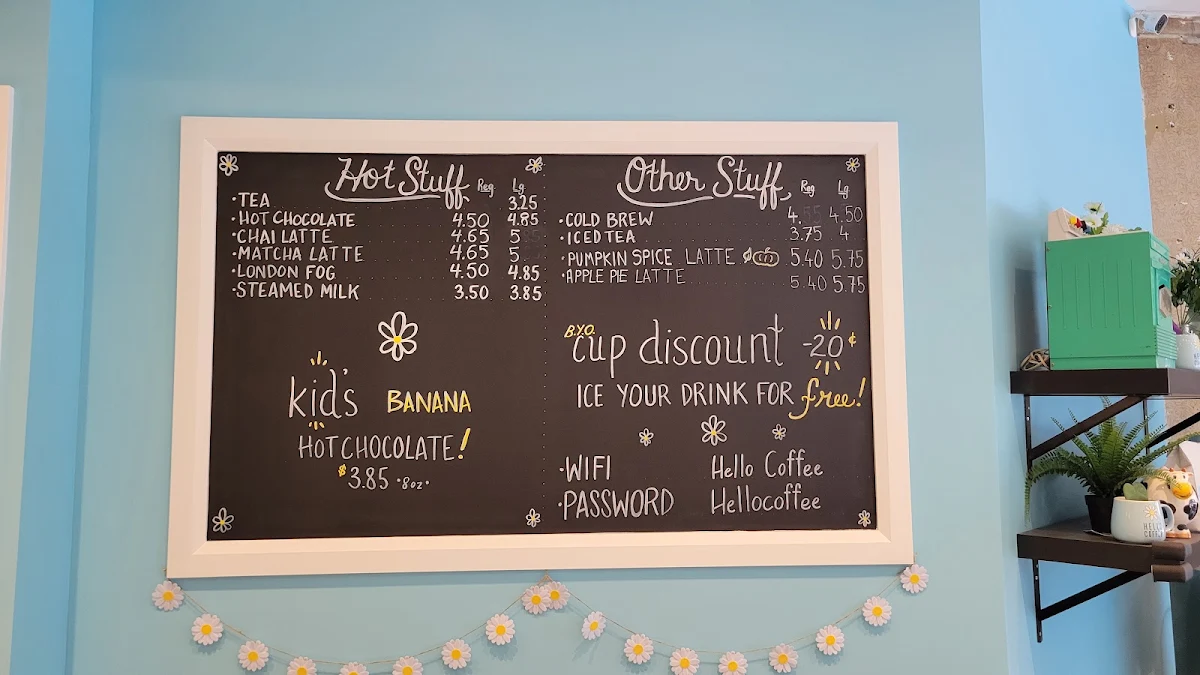 Hot Stuff Reg Lg
·TEA 3.25
·HOT CHOCOLATE 4.50 4.85
·CHAI LATTE 4.65 5
·MATCHA LATTE 4.65 5
·LONDON FOG 4.50 4.85
·STEAMED MILK 3.50 3.85
kid's BANANA
HOT CHOCOLATE!
$3.85 ·8oz·
Other Stuff Reg Lg
·COLD BREW 4. 4.50
·ICED TEA 3.75 4
·PUMPKIN SPICE LATTE 5.40 5.75
·APPLE PIE LATTE 5.40 5.75
B.Y.O. cup discount -20¢
ICE YOUR DRINK FOR free!
·WIFI Hello Coffee
·PASSWORD Hellocoffee
HELLO
COFFEE